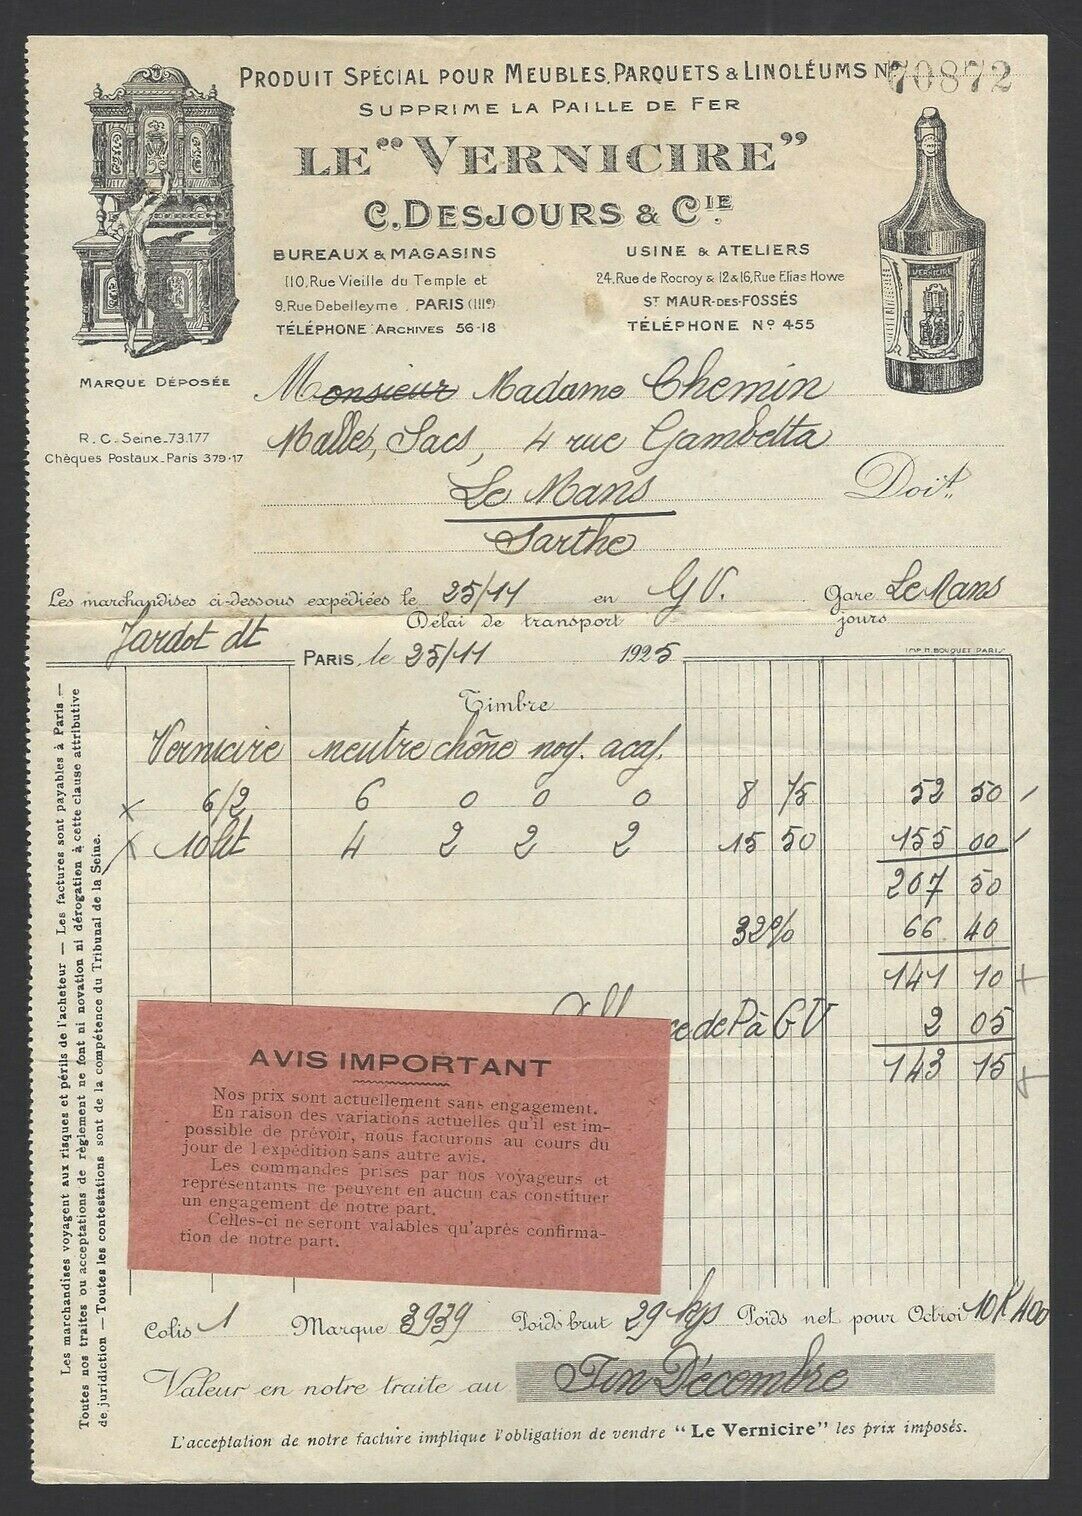 PRODUIT SPÉCIAL POUR MEUBLES, PARQUETS & LINOLÉUMS Nº 70872
SUPPRIME LA PAILLE DE FER
LE "VERNICIRE"
C. DESJOURS & CIE
BUREAUX & MAGASINS
110, Rue Vieille du Temple et
9, Rue Debelleyme, PARIS (IIIe)
TÉLÉPHONE: ARCHIVES 56-18
USINE & ATELIERS
24, Rue de Rocroy & 12 & 16, Rue Elias Howe
ST MAUR-DES-FOSSÉS
TÉLÉPHONE Nº 455
VERNICIRE
MARQUE DÉPOSÉE
R. C. Seine-73.177
Chèques Postaux-Paris 379-17
Monsieur Madame Chemin
Malles, Sacs, 4 rue Gambetta
Le Mans
Doit
Sarthe
Les marchandises ci-dessous expédiées le 25/11 en GV. Gare Le Mans
Délai de transport jours
Jardot dt
PARIS, le 25/11 1925
IMP. H. BOUQUET PARIS
Timbre
Vernicire neutre chêne noy. acaj.
x 6/2 6 0 0 0 8 75 52 50
x 10 lit 4 2 2 2 15 50 155 00
207 50
32% 66 40
141 10
ce de P à GV 2 05
143 15
AVIS IMPORTANT
Nos prix sont actuellement sans engagement.
En raison des variations actuelles qu'il est im-
possible de prévoir, nous facturons au cours du
jour de l'expédition sans autre avis.
Les commandes prises par nos voyageurs et
représentants ne peuvent en aucun cas constituer
un engagement de notre part.
Celles-ci ne seront valables qu'après confirma-
tion de notre part.
Les marchandises voyagent aux risques et périls de l'acheteur — Les factures sont payables à Paris —
Toutes nos traites ou acceptations de règlement ne font ni novation ni dérogation à cette clause attributive
de juridiction — Toutes les contestations sont de la compétence du Tribunal de la Seine.
Colis 1 Marque 3939 Poids brut 29 kgs Poids net pour Octroi 10K400
Valeur en notre traite au Fin Décembre
L'acceptation de notre facture implique l'obligation de vendre "Le Vernicire" les prix imposés.